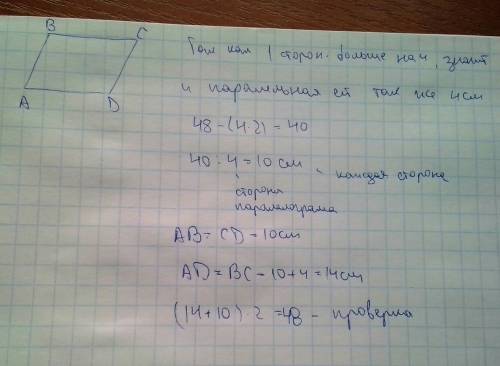 B
C
A
D
Так как 1 сторон. больше на 4, значит
и паралельная ей так же 4см
48-(4·2)=40
40:4=10см - каждая стороне
сторона
паралелограма
AB=CD=10см
AD=BC-10+4=14см
(14+10)·2=48 - проверка